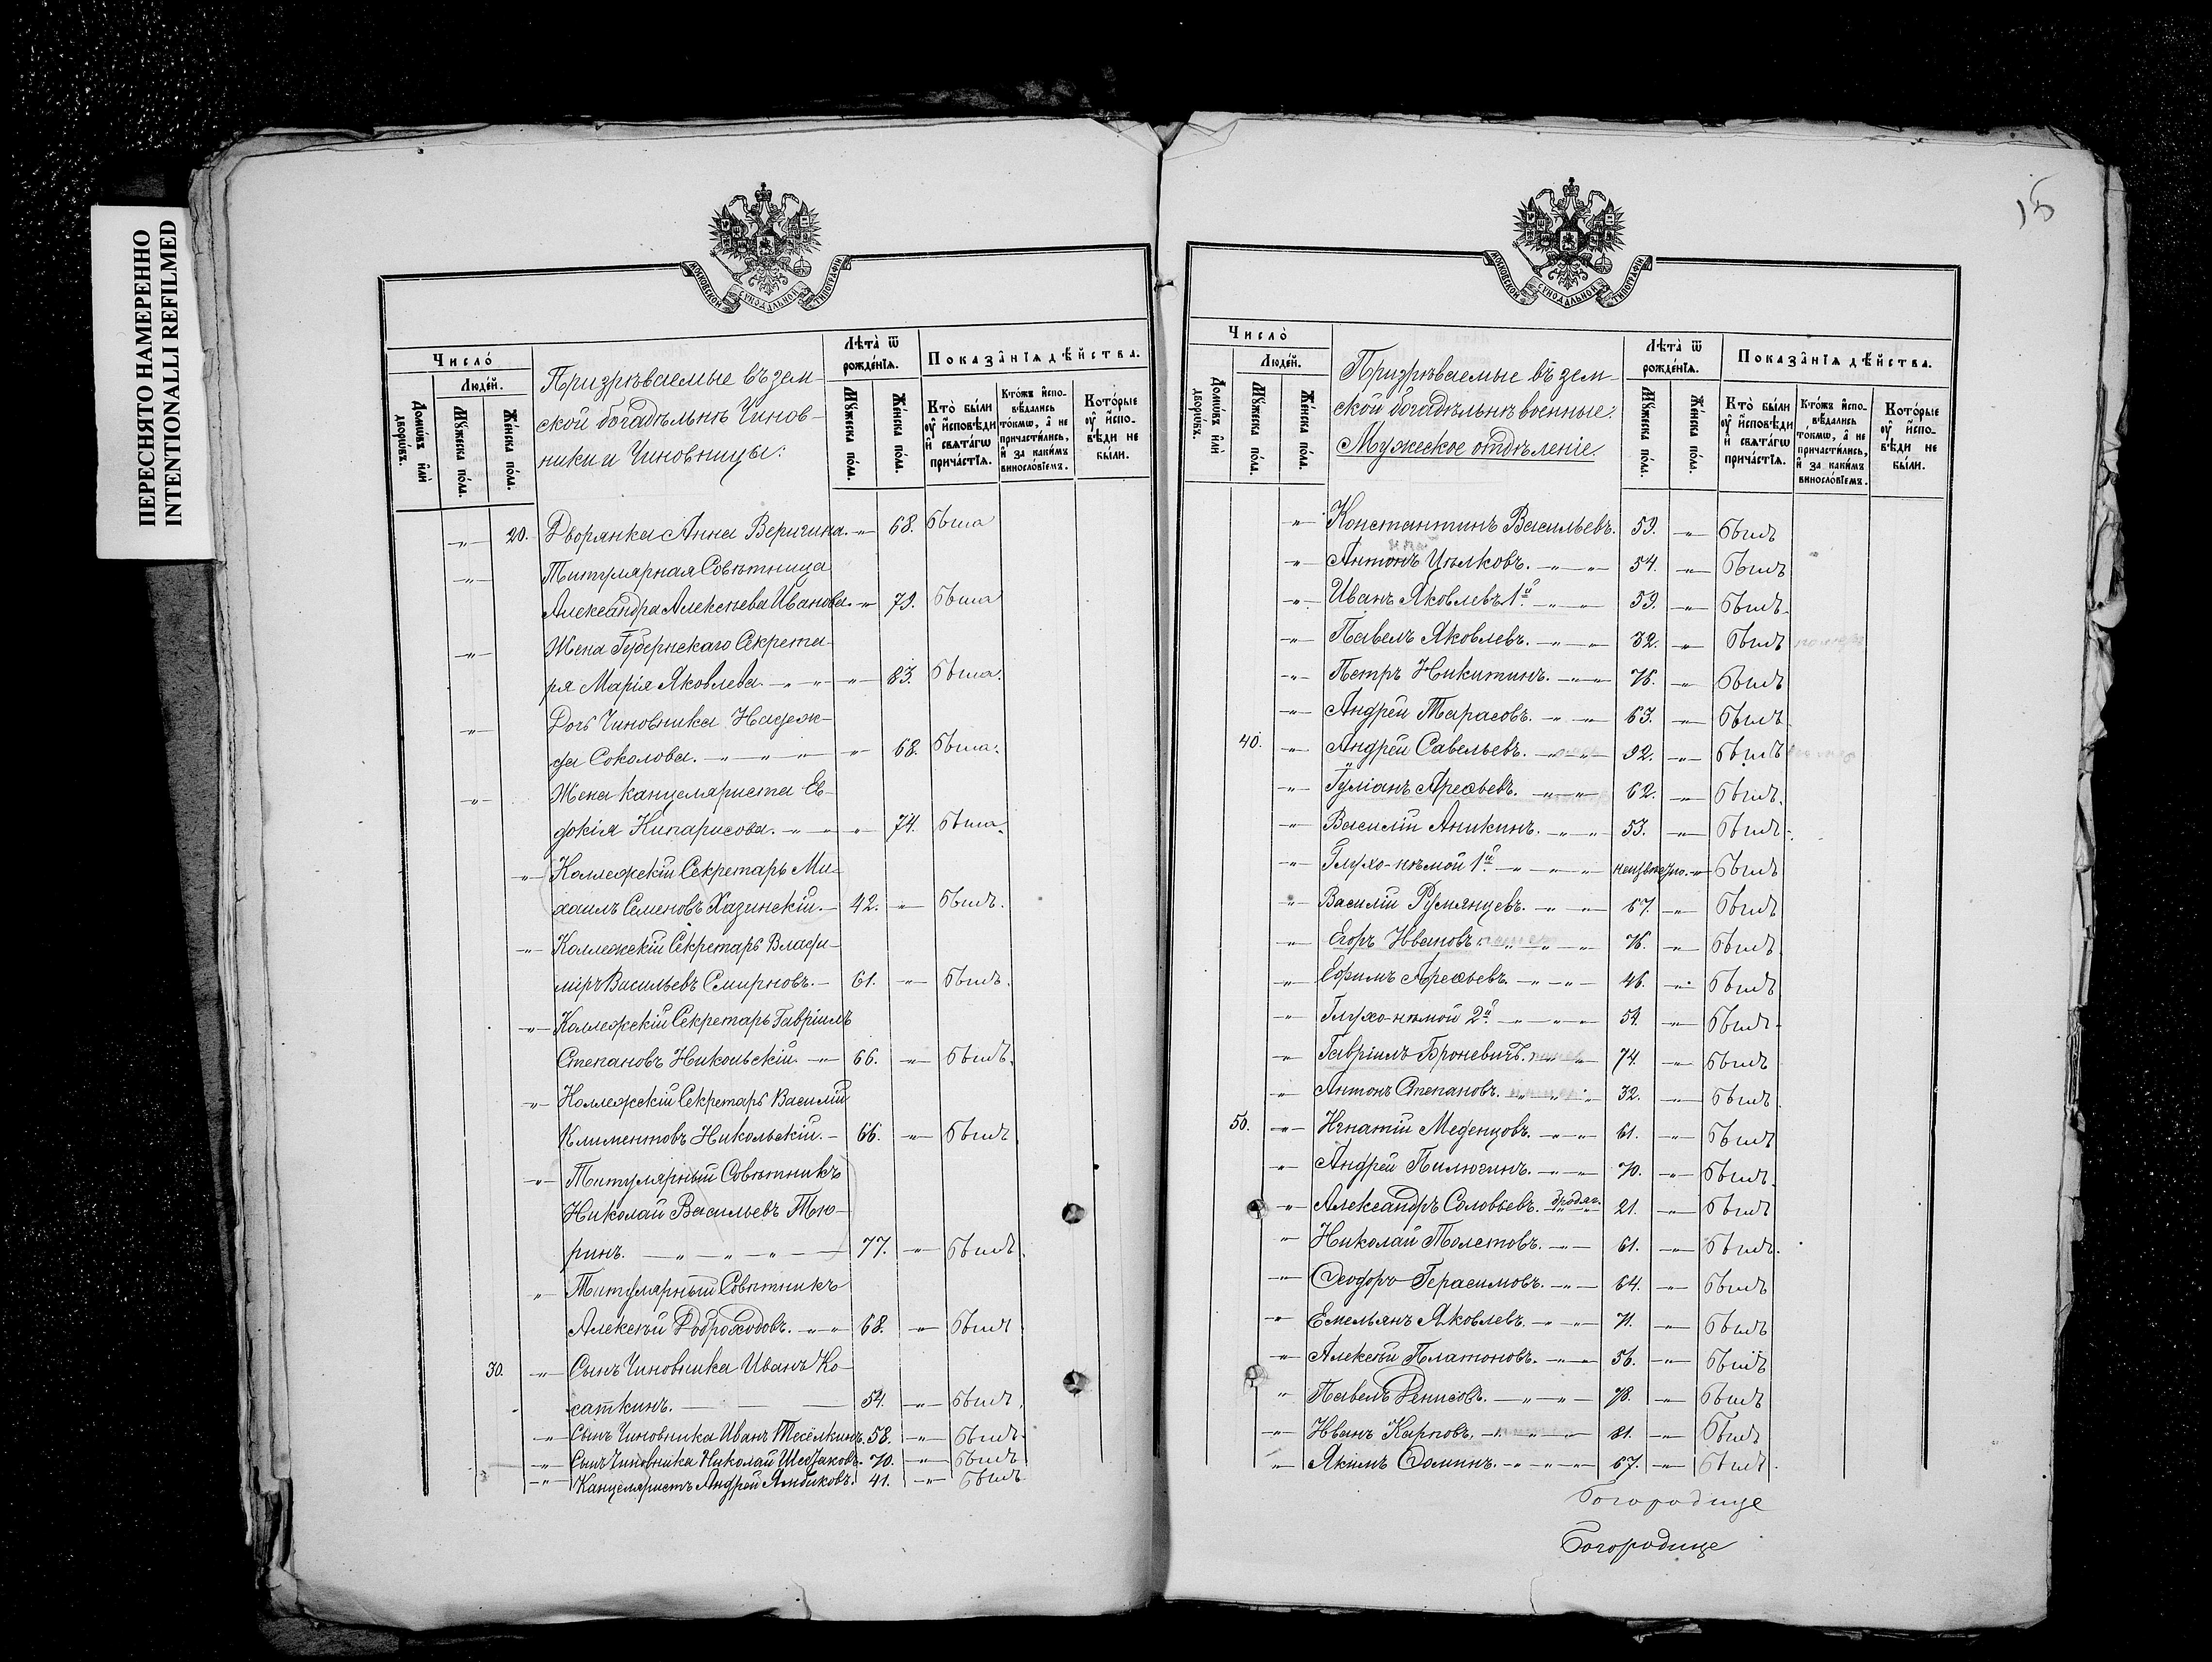 ПЕРЕСНЯТО НАМЕРЕННО
INTENTIONALLI REFILMED
15
МОСКОВСКОЙ СѴНОДАЛЬНОЙ ТИПОГРАФІИ
Число̀
Людей.
Домѡ́въ и҆лѝ дворѡ́въ.
Мꙋ́жеска по́ла.
Же́нска по́ла.
Призрѣваемые въ зем-
ской богадѣльнѣ Чинов-
ники и Чиновницы:
Лѣта̀ ѿ рожде́нїѧ.
Мꙋ́жеска по́ла.
Же́нска по́ла.
Показа̑нїѧ дѣ́йства.
Кто̀ бы́ли ᲂу҆ и҆сповѣ́ди и҆ свѧта́гѡ прича́стїѧ.
Кто́жъ и҆спо-вѣ́дались то́кмѡ, а҆ не причасти́лись, и҆ за каки́мъ винословїемъ.
Кото́рые ᲂу҆ и҆спо-вѣ́ди не бы́ли.
-„- 20. Дворянка Анна Веригина. -„- 68. Была
-„- Титулярная Совѣтница
Александра Алексѣева Иванова. -„- 79. Была
-„- Жена Губернскаго Секрета-
ря Марія Яковлева. -„-„- -„- 83. Была.
-„- Дочь Чиновника Надеж-
да Соколова. -„-„-„- -„- 68. Была.
-„- Жена канцеляриста Ев-
докія Кипарисова. -„-„- -„- 74. Была.
-„- Коллежскій Секретарь Ми-
хаилъ Семеновъ Хазинскій. - 42. -„- Былъ.
-„- Коллежскій Секретарь Влади-
міръ Васильевъ Смирновъ. - 61. -„- Былъ.
-„- Коллежскій Секретарь Гавріилъ
Степановъ Никольскій. -„- 66. -„- Былъ.
-„- Коллежскій Секретарь Василій
Климентовъ Никольскій. - 66. -„- Былъ
-„- Титулярный Совѣтникъ
Николай Васильевъ Тю-
ринъ. -„-„-„- 77. -„- Былъ.
-„- Титулярный Совѣтникъ
Алексѣй Доброходовъ. -„-„- 68. -„- Былъ
30. -„- Сынъ Чиновника Иванъ Ко-
саткинъ. - - 54. -„- Былъ.
-„- Сынъ Чиновника Иванъ Тесёлкинъ. 58. -„- Былъ.
-„- Сынъ Чиновника Николай 70. -„- Былъ
-„- Канцеляристъ Андрей 41. -„- Былъ
МОСКОВСКОЙ СѴНОДАЛЬНОЙ ТИПОГРАФІИ
Число̀
Людей.
Домѡ́въ и҆лѝ дворѡ́въ.
Мꙋ́жеска по́ла.
Же́нска по́ла.
Призрѣваемые въ зем-
ской богадѣльнѣ военные.
Мужеское отдѣленіе.
Лѣта̀ ѿ рожде́нїѧ.
Мꙋ́жеска по́ла.
Же́нска по́ла.
Показа̑нїѧ дѣ́йства.
Кто̀ бы́ли ᲂу҆ и҆сповѣ́ди и҆ свѧта́гѡ прича́стїѧ.
Кто́жъ и҆спо-вѣ́дались то́кмѡ, а҆ не причасти́лись, и҆ за каки́мъ винословїемъ.
Кото́рые ᲂу҆ и҆спо-вѣ́ди не бы́ли.
-„- Константинъ Васильевъ. 59. -„- Былъ
-„- Антонъ Цѣлковъ. -„-„- 54. -„- Былъ
-„- Иванъ Яковлевъ 1й. -„-„- 59. -„- Былъ.
-„- Павелъ Яковлевъ. -„-„- 32. -„- Былъ померъ
-„- Петръ Никитинъ. -„-„- 76. -„- Былъ
-„- Андрей Тарасовъ. -„-„- 63. -„- Былъ
40. -„- Андрей Савельевъ. -„-„- 92. -„- Былъ
-„- Гуліанъ Арефьевъ. -„-„- 62. -„- Былъ.
-„- Василій Аникинъ. -„-„- 53. -„- Былъ.
-„- Глухо-нѣмой 1й. -„-„-„- неизвѣстно. -„- Былъ
-„- Василій Румянцевъ. -„-„- 67. -„- Былъ
-„- Егоръ Ивановъ. -„-„- 76. -„- Былъ
-„- Ефимъ Арефьевъ. -„-„- 46. -„- Былъ
-„- Глухо-нѣмой 2й. -„-„-„- 54. -„- Былъ.
-„- Гавріилъ Броневичъ. -„- 74. -„- Былъ
-„- Антонъ Степановъ. -„- 32. -„- Былъ.
50. -„- Игнатій Меденцовъ. -„-„- 61. -„- Былъ
-„- Андрей Пилюгинъ. -„-„- 70. -„- Былъ.
-„- Александръ Соловьевъ. бродяг. 21. -„- Былъ
-„- Николай Толстовъ. -„- 61. -„- Былъ.
-„- Ѳеодоръ Герасимовъ. -„- 64. -„- Былъ
-„- Емельянъ Яковлевъ. -„-„- 71. -„- Былъ
-„- Алексѣй Платоновъ. -„-„- 56. -„- Былъ
-„- Павелъ Денисовъ. -„-„- 78. -„- Былъ
-„- Иванъ Карповъ. -„-„- 81. -„- Былъ
-„- Якимъ Ѳоминъ. -„-„-„- 67. -„- Былъ.
Богородице
Богородице